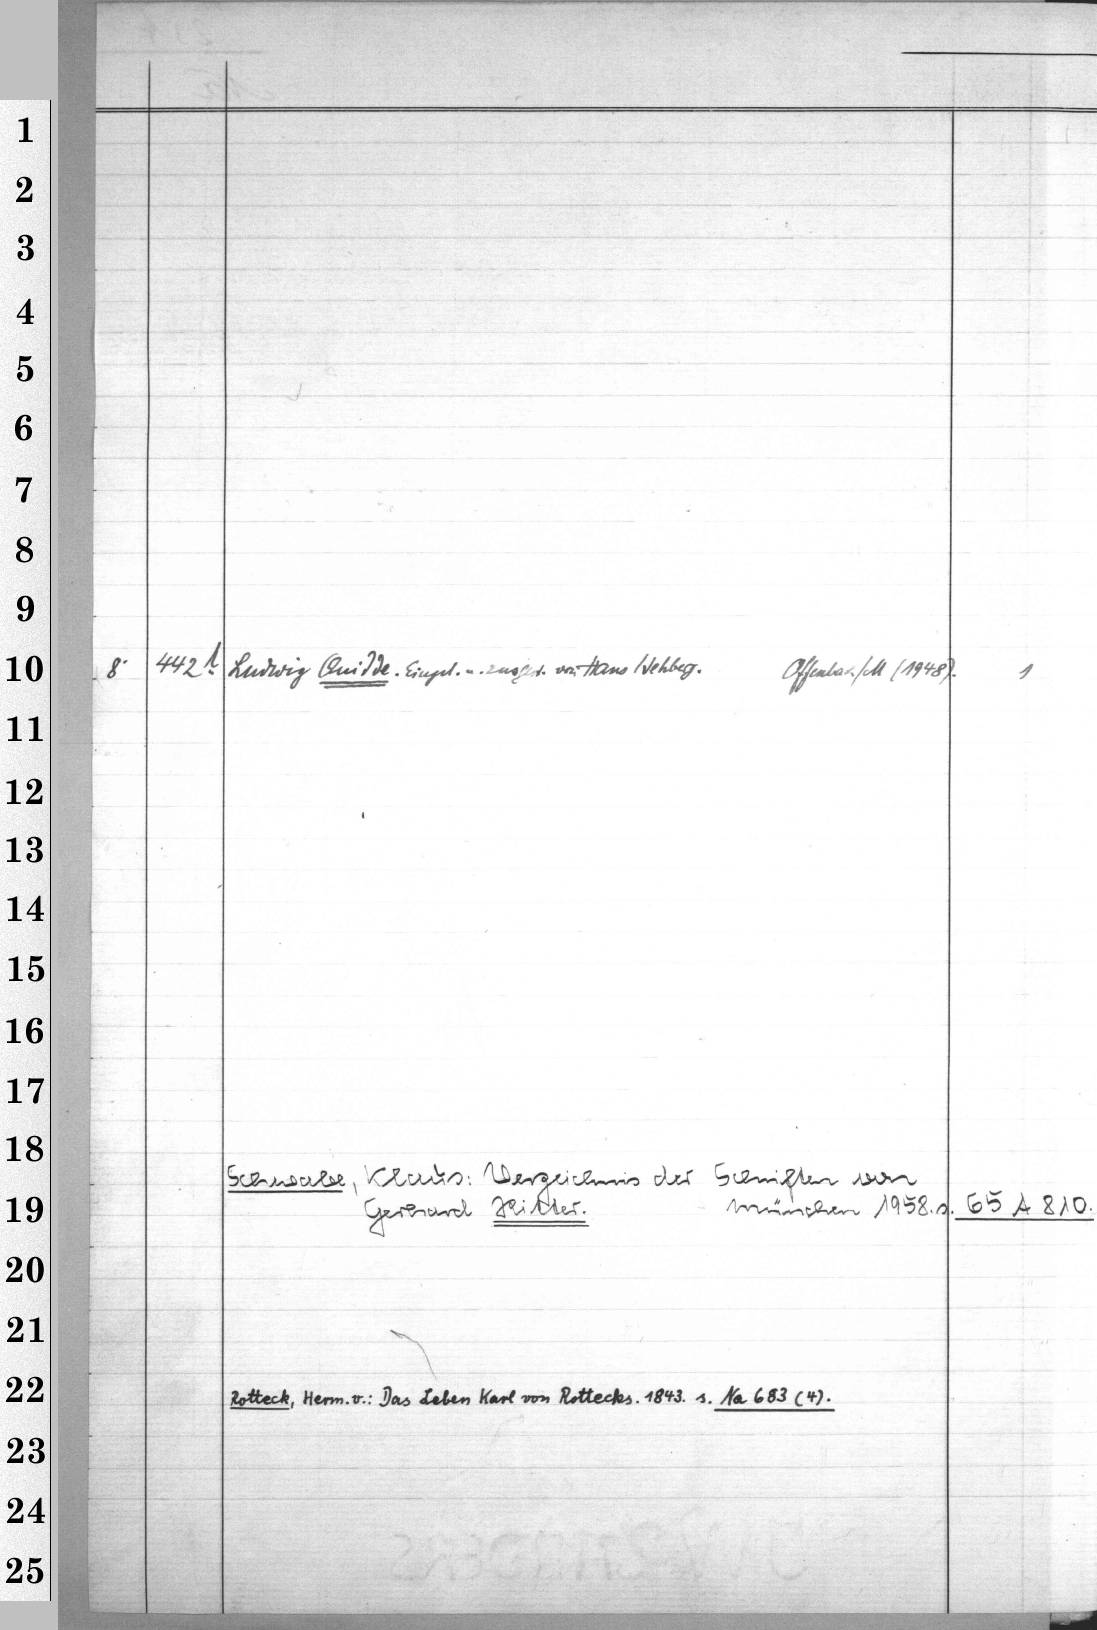 1
2
3
4
5
6
7
8
9
10
8° 442 h Ludwig Quidde. Eingel. u. zusgest. von Hans Wehberg. Offenbach/M (1948). 1
11
12
13
14
15
16
17
18
Schwabe, Klaus: Verzeichnis der Schriften von
19
Gerhard Ritter. München 1958. s. 65 A 810.
20
21
22
Rotteck, Herm. v.: Das Leben Karl von Rottecks. 1843. s. Na 683 (4).
23
24
25